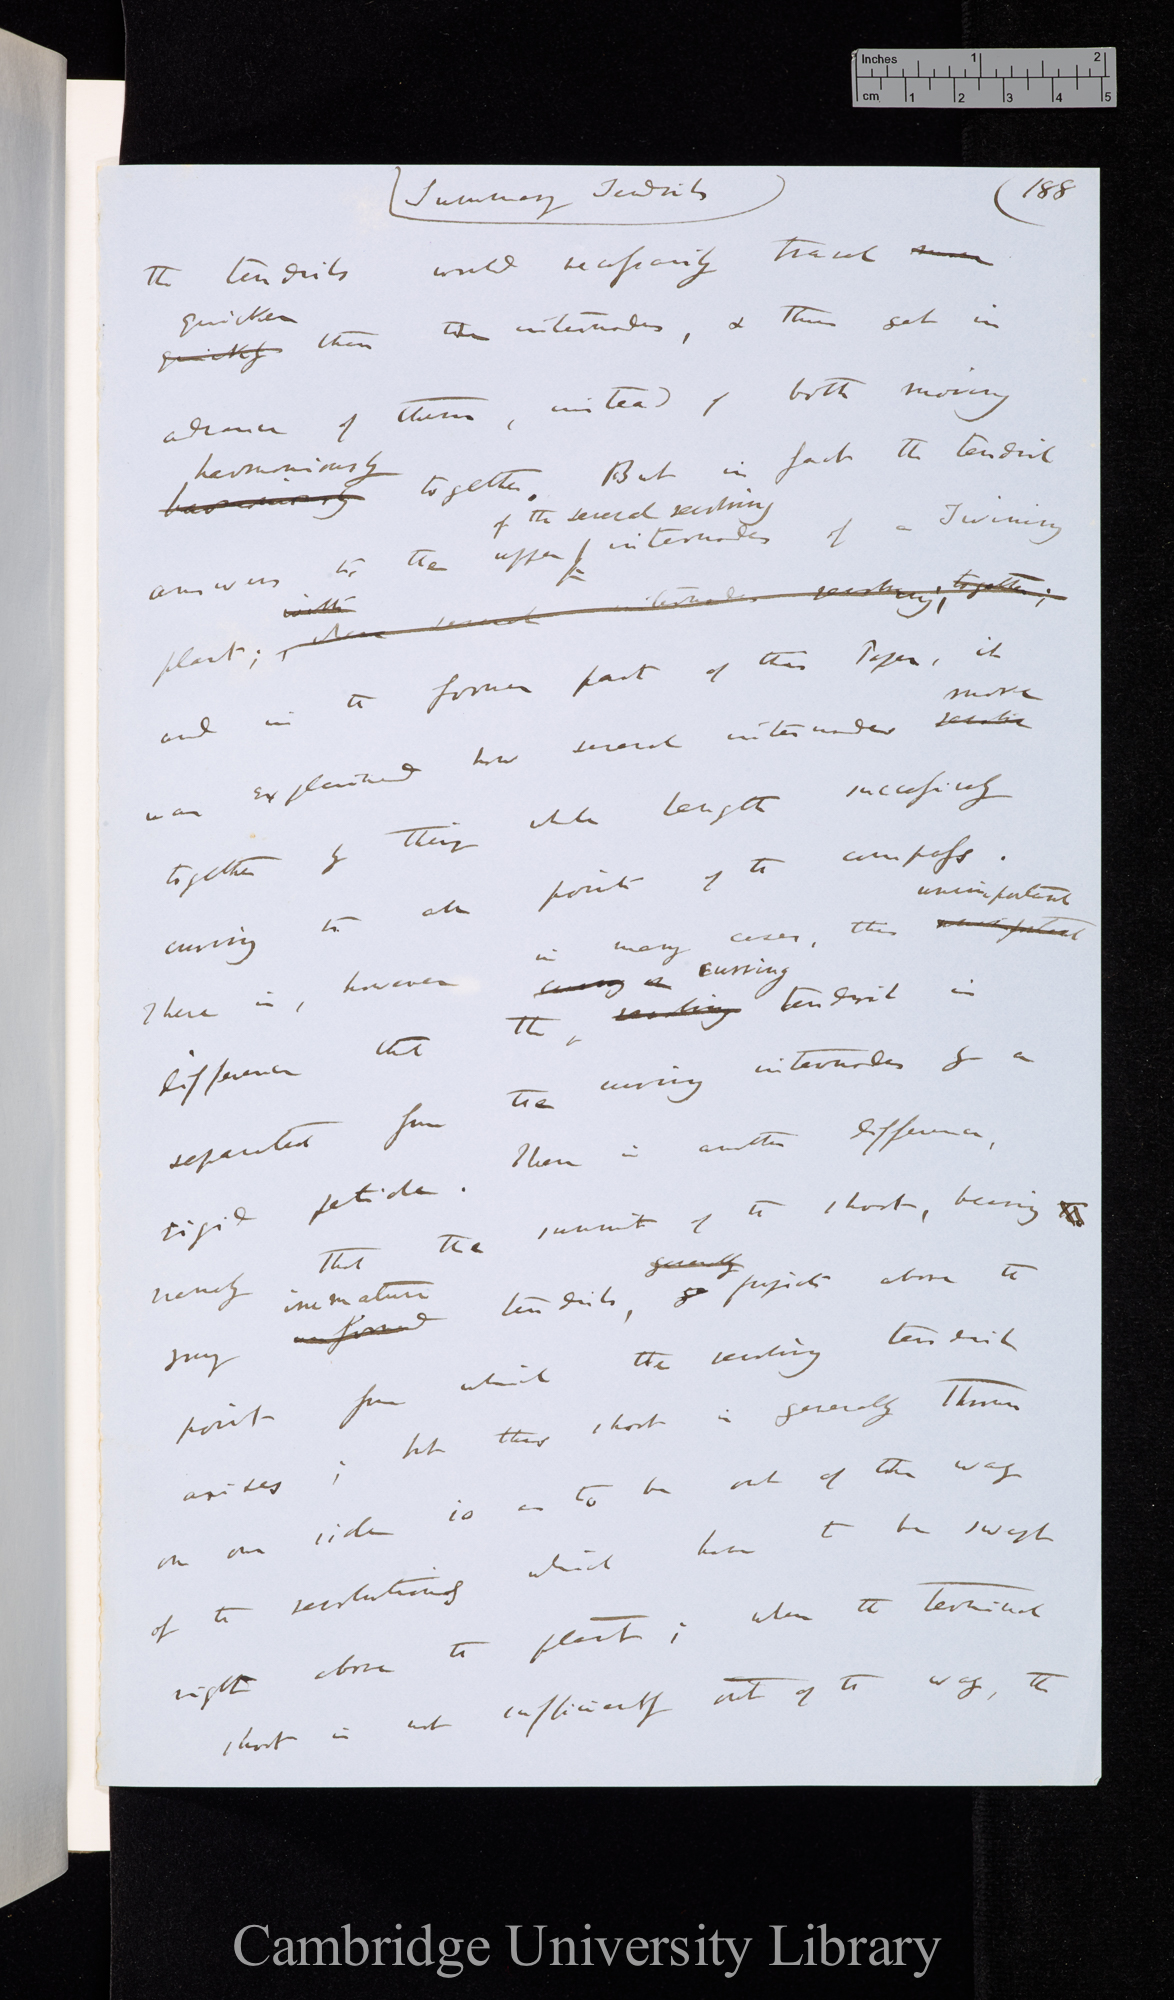 Inches 1 2
cm 1 2 3 4 5
Summary Tendrils (188
the tendrils would necessarily travel
quicker
quickly than the internodes, & thus get in
advance of them, instead of both moving
harmoniously
harmoniously together. But in fact the tendril
of the several revolving
answers to the upper internodes of a Twining
with
plant; when several internodes revolving; together;
and in the former part of this Paper, it
move
was explained how several internodes revolve
together by their whole length successively
curving to all points of the compass.
unimportant
There is, however in many cases, this unimportant
curving
difference that the revolving tendril is
separated from the curving internodes by a
rigid petiole. There is another difference,
namely that the summit of the shoot, bearing the
generally
immature
young unformed tendrils, projects above the
point from which the revolving tendril
arises; but this shoot is generally thrown
on one side so as to be out of the way
of the revolutions which have to be swept
right above the plant; when the terminal
shoot is not sufficiently out of the way, the
Cambridge University Library